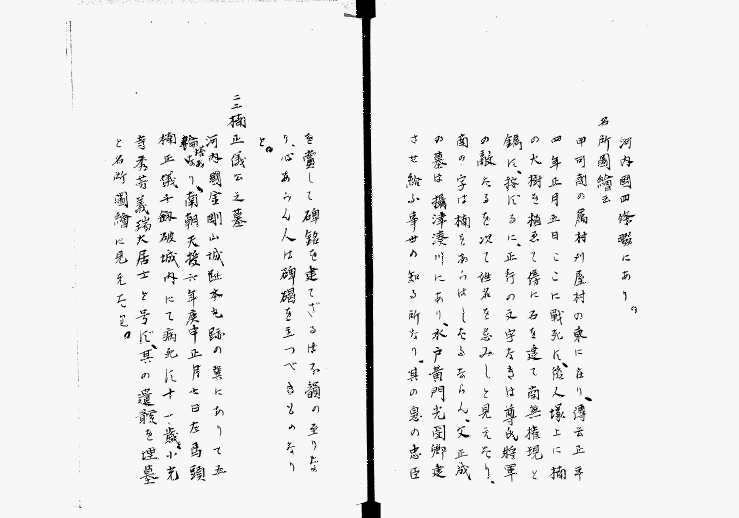 河内國四條畷にあり。
名所圖繪云
甲可南の属村刈屋村の東に在り、傳云正平
四年正月五日ここに戦死に、後人塚上に楠
の大樹を植ゑて傍に石を建て南無権現と
鐫に、按ずるに、正行の文字なきは尊氏将軍
の敵たるを以て姓名を忌みしと見えたり、
南の字は楠をあらはしたるならん、父正成
の墓は攝津湊川にあり、水戸黄門光圀卿建
させ給ふ事世の知る所なり、其の息の忠臣
を賞して碑銘を建てざるは不韻の至りな
り、心あらん人は碑碣を立つべきものなり
と。
二二 楠正儀公之墓
河内國金剛山城趾本丸跡の巽にありて五
輪塔あり、南朝天授六年庚申正月七日左馬頭
楠正儀千劔破城内にて病死に十一歳、小光
寺秀芳義瑞大居士と号だ、其の遺骸を埋墓
と名所圖繪に見えたり。